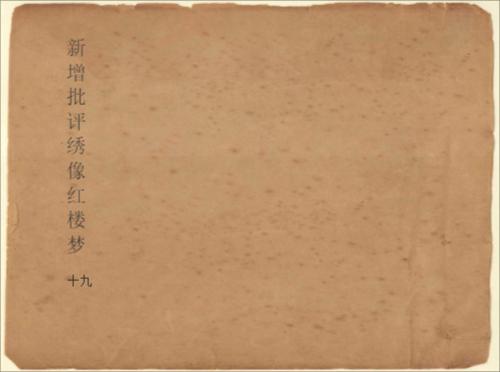 新增批评绣像红楼梦
十九